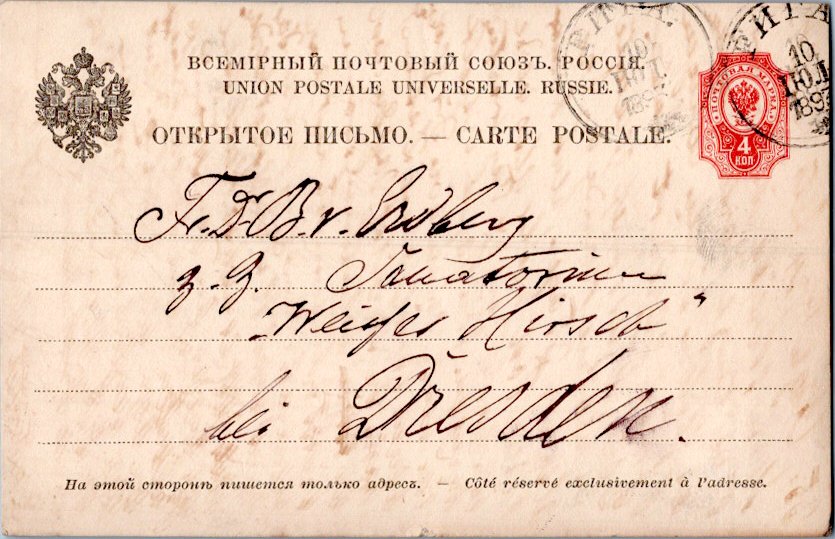 ВСЕМІРНЫЙ ПОЧТОВЫЙ СОЮЗЪ. РОССІЯ.
UNION POSTALE UNIVERSELLE. RUSSIE.
ОТКРЫТОЕ ПИСЬМО. — CARTE POSTALE.
РИГА.
10
ІЮЛ
189
РИГА
10
ІЮЛ
1897
ПОЧТОВАЯ МАРКА
4
КОП
Fr. Dr. B. v. Erdberg
z. Z. Sanatorium
„Weisser Hirsch"
bei Dresden.
На этой сторонѣ пишется только адресъ. — Côté réservé exclusivement à l'adresse.